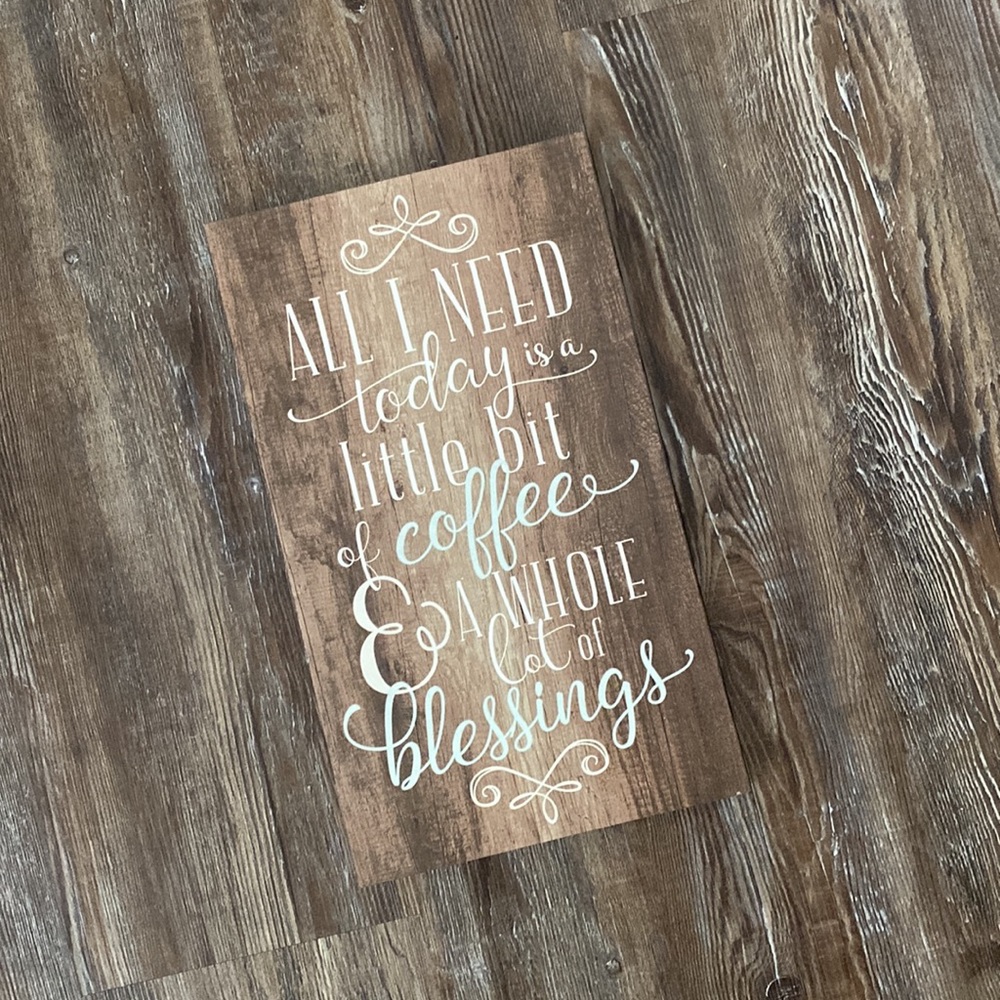 ALL I NEED
today is a
little bit
of coffee
& A WHOLE
lot of
blessings